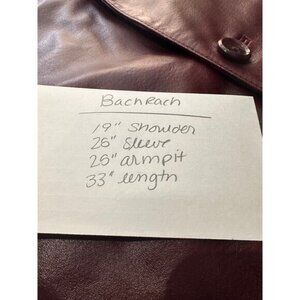 BachRach
19" Shoulder
26" Sleeve
25" armpit
33" length